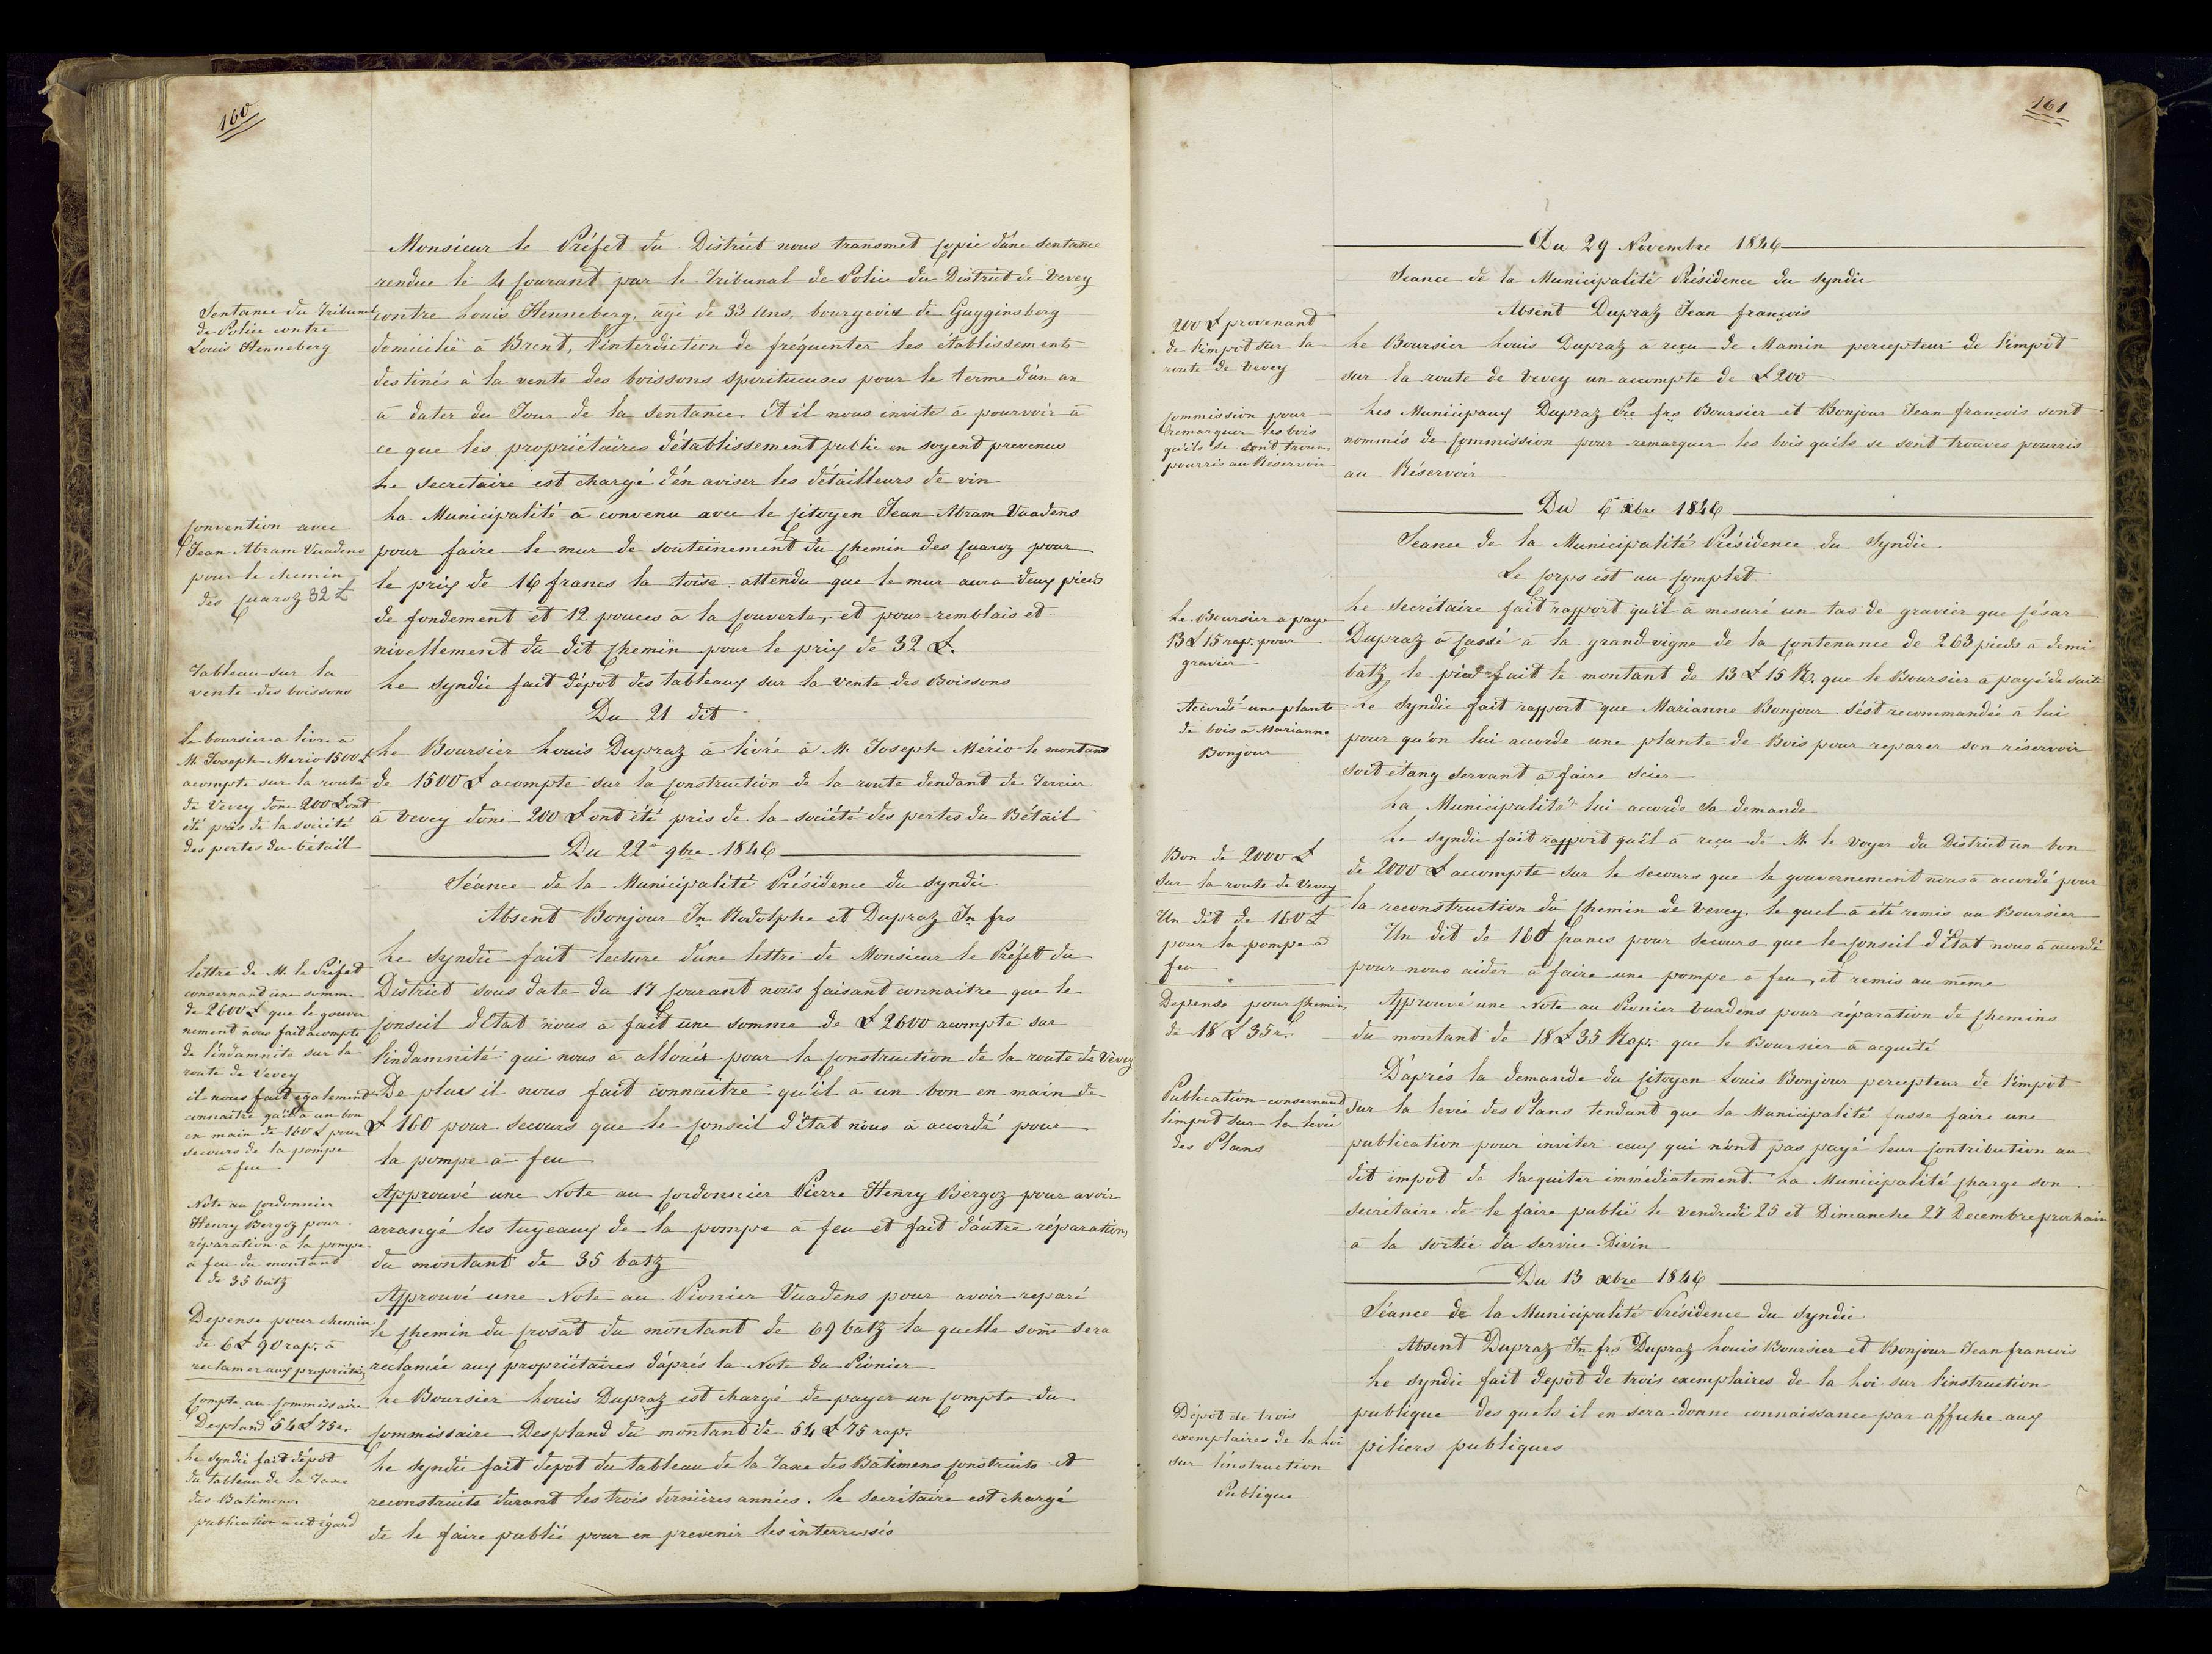 160
Monsieur le Préfet du District nous transmet copie d'une sentance
rendue le 4 courant par le Tribunal de Police du District de Vevey
Sentance du Tribunal
de Police contre
Louis Henneberg
contre Louis Henneberg, agé de 33 ans, bourgeois de Gugginsberg
domicilié à Brent, l'interdiction de fréquenter les établissements
destinés à la vente des boissons spiritueuses pour le terme d'un an
à dater du Jour de la sentance. Et il nous invite à pourvoir à
ce que les propriétaires d'établissement public en soyent prevenus
Le secretaire est chargé d'en aviser les détailleurs de vin
Convention avec
Jean Abram Vuadens
pour le chemin
des Cuaroz 32 £
La Municipalité à convenu avec le Citoyen Jean Abram Vuadens
pour faire le mur de souteinement du Chemin des Cuaroz pour
le prix de 16 francs la toise attendu que le mur aura deux pieds
de fondement et 12 pouces à la Couverte, et pour remblais et
nivellement du dit Chemin pour le prix de 32 £.
Tableau sur la
vente des boissons
Le Syndic fait dépot des tableaux sur la vente des Boissons
Du 21 dit
le boursier a livré à
M. Joseph Mério 1500 £
acompte sur la route
de Vevey donc 200 £ ont
été pris de la société
des pertes du bétail
Le Boursier Louis Dupraz à livré à M. Joseph Mério le montant
de 1500 £ acompte sur la Construction de la route dendant de Tercier
à Vevey donc 200 £ ont été pris de la société des pertes du Bétail
Du 22e 9bre 1846
Séance de la Municipalité Présidence du syndic
Absent Bonjour Jn Rodolphe et Dupraz Jn frs
lettre de M. le Préfet
consernant une somme
de 2600 £ que le gouver
nement nous fait acompte
de l'indamnité sur la
route de Vevey
Le Syndic fait lecture d'une lettre de Monsieur le Préfet du
District sous date du 17 courant nous faisant connaitre que le
Conseil d'Etat nous a fait une somme de £ 2600 acompte sur
l'indamnité qui nous à allouér pour la Construction de la route de Vevey
il nous fait également
connaitre qu'il à un bon
en main de 160 £ pour
secours de la pompe
à feu
De plus il nous fait connaitre qu'il à un bon en main de
£ 160 pour secours que le Conseil d'Etat nous à accordé pour
la pompe à feu
Note au Cordonnier
Henry Bergoz pour
réparation à la pompe
à feu du montant
de 35 batz
Approuvé une Note au Cordonnier Pierre Henry Bergoz pour avoir
arrangé les tuyeaux de la pompe à feu et fait d'autre réparation,
du montant de 35 batz
Depense pour chemin
de 6 £ 90 rap. à
reclamer aux propriétaires
Approuvé une Note au Pionier Vuadens pour avoir reparé
le Chemin du Crosat du montant de 69 batz la quelle some sera
réclamée aux propriétaires d'aprés la Note du Pionier
Compte au Commissaire
Despland 54 £ 75 r.
Le Boursier Louis Dupraz est chargé de payer un Compte du
Commissaire Despland du montant de 54 £ 75 rap.
Le Syndic fait dépot
du tableau de la Taxe
des Batimens
publication à cet égard
Le Syndic fait depot du tableau de la Taxe des Batimens Construits et
reconstruits durant les trois dernières années. le secrétaire est chargé
de le faire publié pour en prevenir les interressés
161
Du 29 Novembre 1846
Seance de la Municipalité Présidence du syndic
Absent Dupraz Jean françois
200 £ provenand
de l'impot sur la
route de Vevey
Le Boursier Louis Dupraz a reçu de Mamin percepteur de l'impot
sur la route de Vevey un accompte de £ 200
Commission pour
remarquer les bois
qu'ils se sont trouvé
pourris au Réservoir
Les Municipaux Dupraz Pre frs Boursier et Bonjour Jean françois sont
nommés de Commission pour remarquer les bois qu'ils se sont trouves pourris
au Réservoir
Du 6e xbre 1846
Seance de la Municipalité Présidence du Syndic
Le Corps est au Complet
Le Boursier a payé
13 £ 15 rap. pour
gravier
Le secrétaire fait rapport qu'il à mesuré un tas de gravier que César
Dupraz à Cassé à la grand vigne de la Contenance de 263 pieds à demi
batz le pied fait le montant de 13 £ 15 R. que le Boursier a payé de suite
Accordé une plante
de bois à Marianne
Bonjour
Le Syndic fait rapport que Marianne Bonjour s'est recommandée à lui
pour qu'on lui accorde une plante de Bois pour reparer son réservoir
soit étang servant à faire scier
La Municipalité lui accorde sa demande
Bon de 2000 £
sur la route de Vevey
Le Syndic fait rapport qu'il à reçu de M. le Voyer du District un bon
de 2000 £ accompte sur le secours que le gouvernement nous à accordé pour
la reconstruction du Chemin de Vevey. le quel à été remis au Boursier
Un dit de 160 £
pour la pompe à
feu
Un dit de 160 francs pour secours que le Conseil d'Etat nous à accordé
pour nous aider à faire une pompe à feu, et remis au même
Depense pour Chemins
de 18 £ 35 r.
Approuvé une Note au Pionier Vuadens pour réparation de Chemins
du montant de 18 £ 35 Rap. que le Boursier à acquité
Publication consernand
l'impot sur la levée
des Plans
D'après la demande du Citoyen Louis Bonjour percepteur de l'impot
sur la levée des Plans tendant que la Municipalité fasse faire une
publication pour inviter ceux qui n'ont pas payé leur Contribution au
dit impot de l'acquiter immédiatement. La Municipalité Charge son
secrétaire de le faire publié le vendredi 25 et Dimanche 27 Decembre prochain
à la sortie du Service Divin
Du 13 xbre 1846
Séance de la Municipalité Présidence du Syndic
Absent Dupraz Jn frs Dupraz Louis Boursier et Bonjour Jean francois
Dépot de trois
exemplaires de la Loi
sur l'instruction
Publique
Le Syndic fait depot de trois exemplaires de la Loi sur l'instruction
publique des quels il en sera donne connaissance par affiche aux
piliers publiques